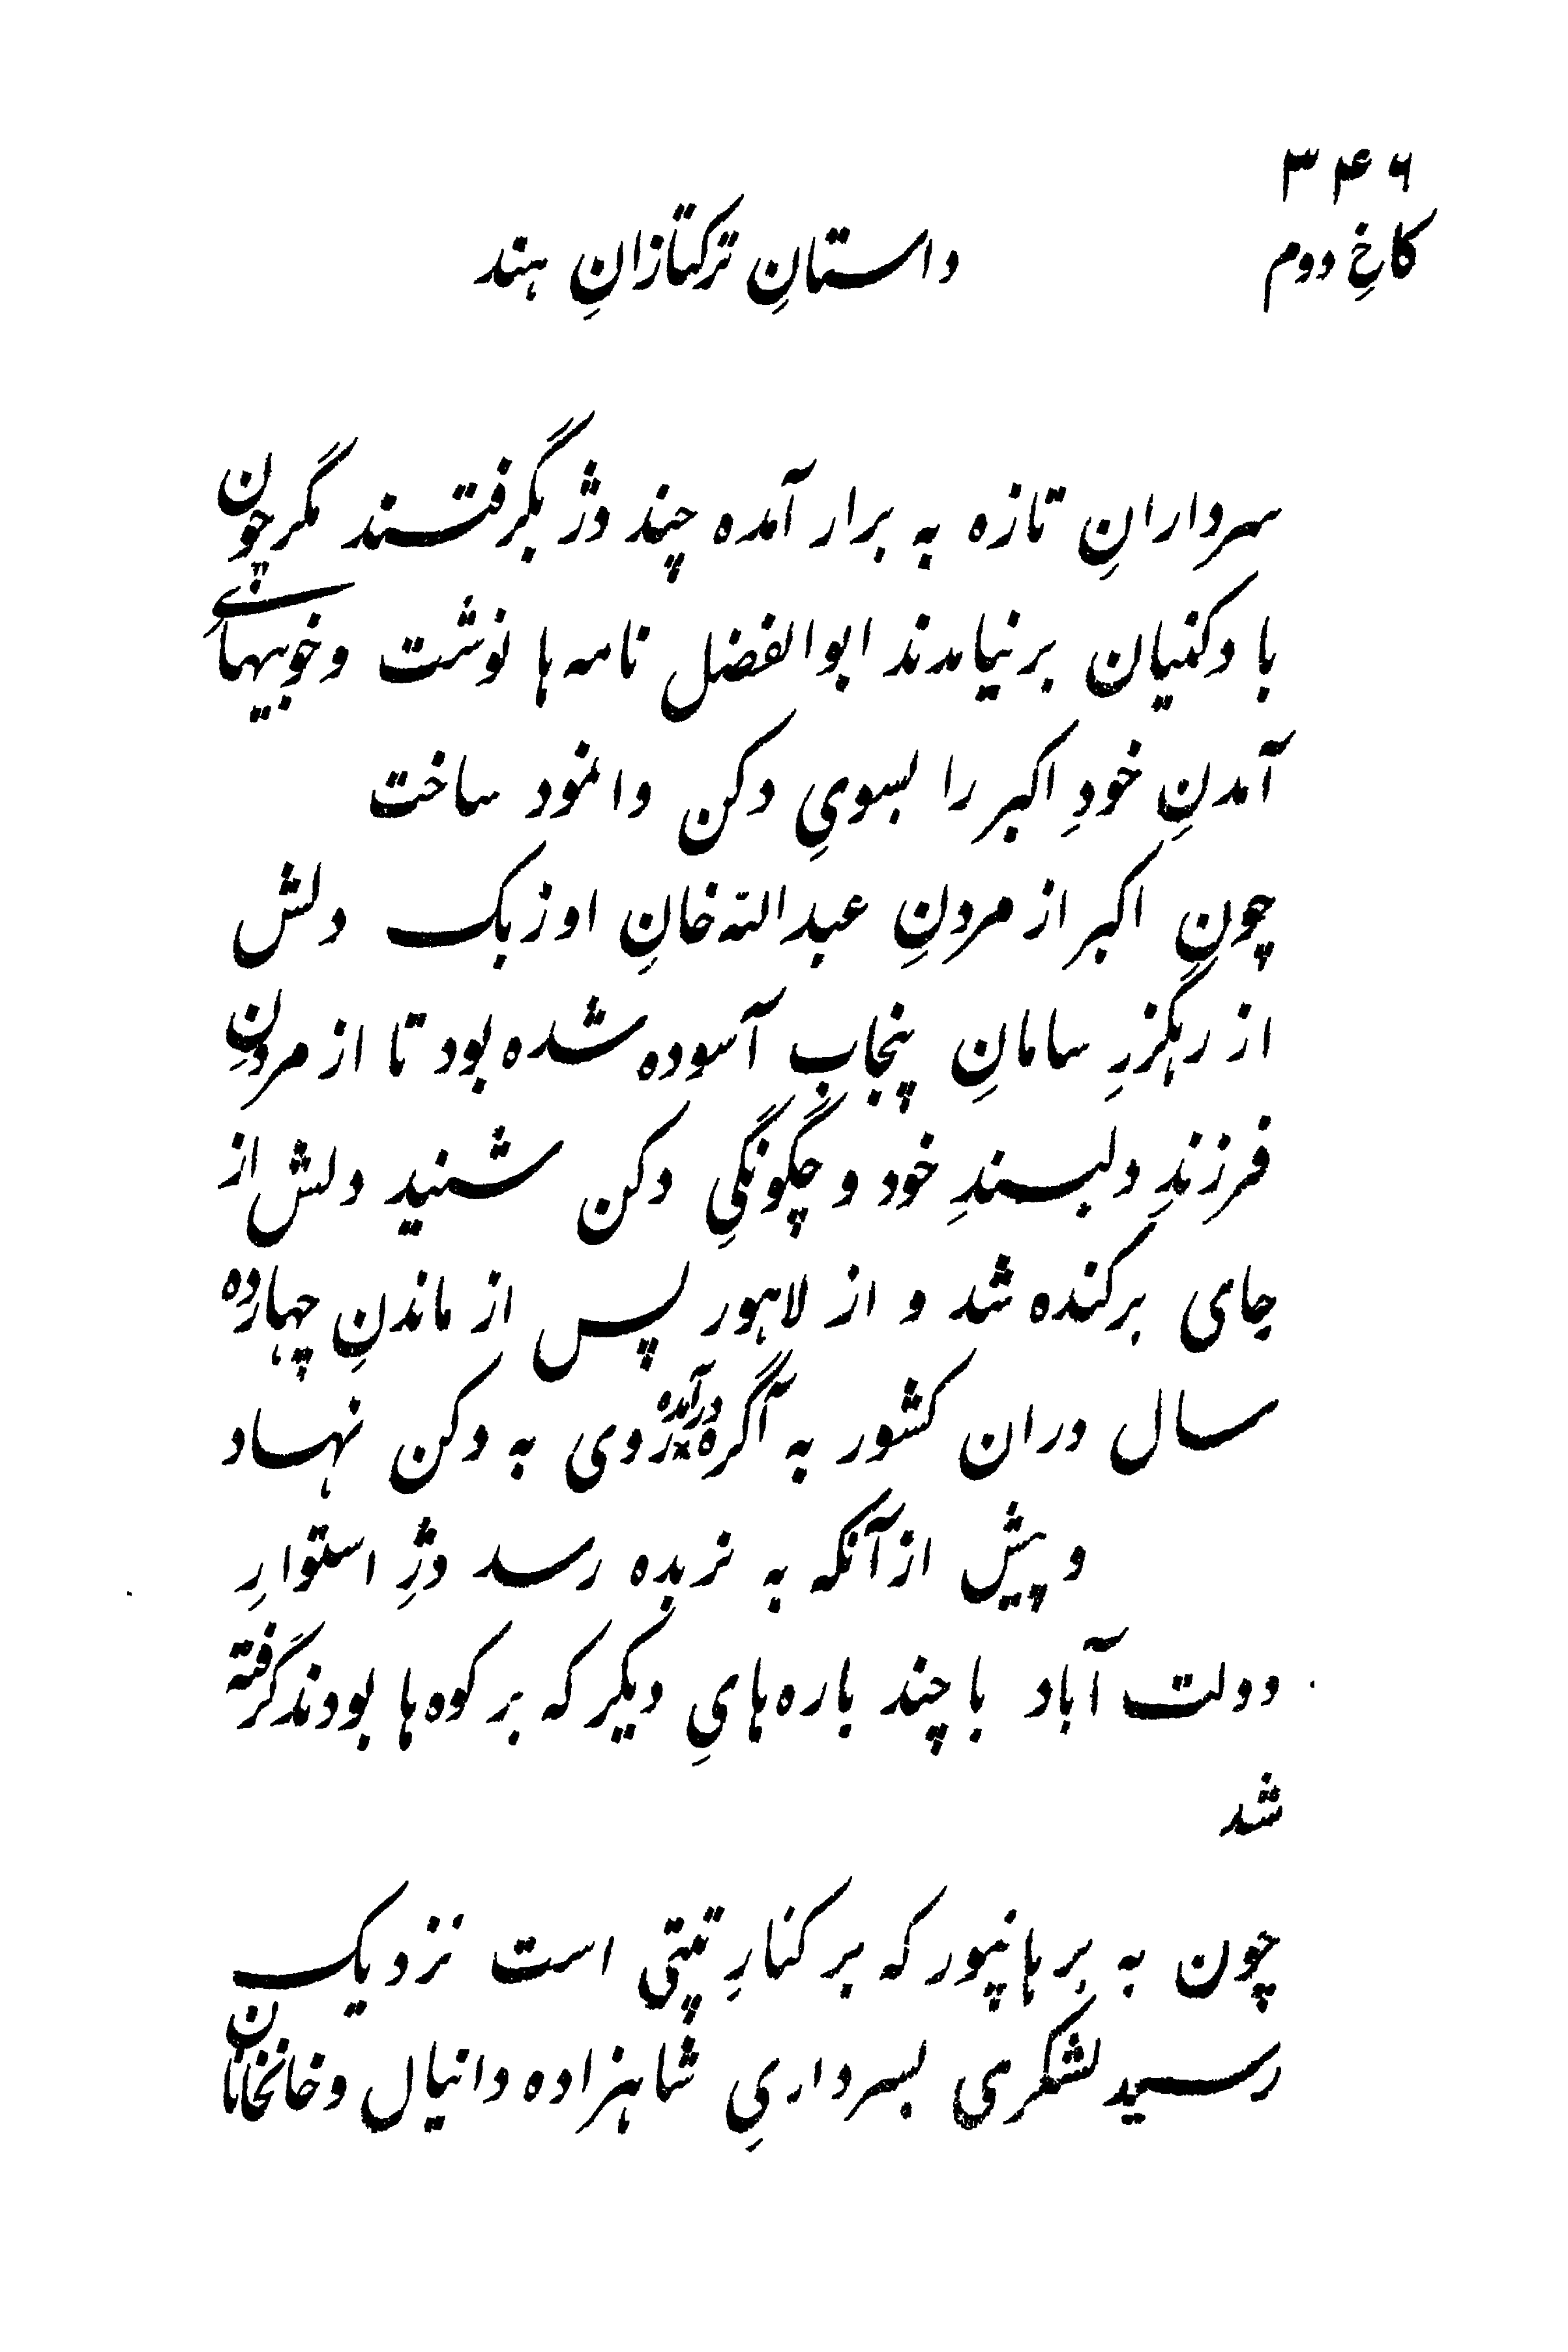 ۳۴۶
کاخِ دوم
داستانِ ترکتازانِ هند
سردارانِ تازه به برار آمده چند دژ بگرفتند مگر چون
با دکنیان برنیامدند ابوالفضل نامه ها نوشت و خوبیهای
آمدنِ خودِ اکبر را بسویِ دکن وانمود ساخت
چون اکبر از مردنِ عبدالله خانِ اوزبک دلش
از رهگزرِ سامانِ پنجاب آسوده شده بود تا از مردنِ
فرزندِ دلبندِ خود و چگونگیِ دکن شنید دلش از
جای برکنده شد و از لاهور پس از ماندنِ چهارده
سال دران کشور به آگره درآمده روی به دکن نهاد
و پیش از آنکه به نربده رسد دژِ استوارِ
دولت آباد با چند باره هایِ دیگر که بر کوه ها بودند گرفته
شد
چون به برهانپور که بر کنارِ تپتی است نزدیک
رسید لشکری بسرداریِ شاهزاده دانیال و خانخانان